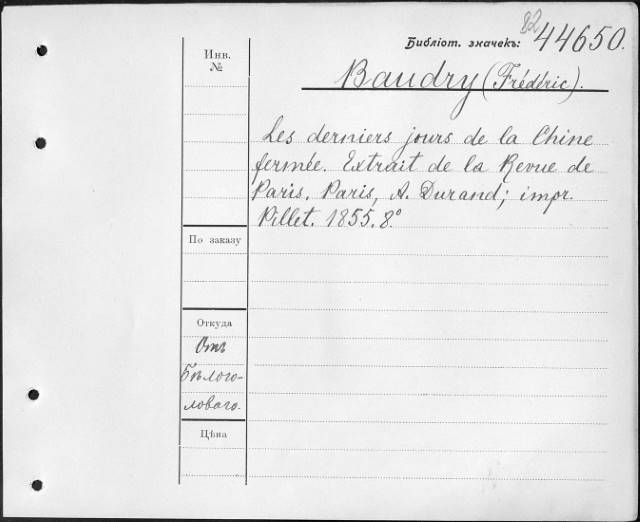 Библіот. значекъ: 82 44650.
Инв. №
Baudry (Frédéric).
Les derniers jours de la Chine
fermée. Extrait de la Revue de
Paris. Paris, A. Durand; impr.
Pillet. 1855. 8.º
По заказу
Откуда
Отъ
Бѣлого-
ловаго.
Цѣна